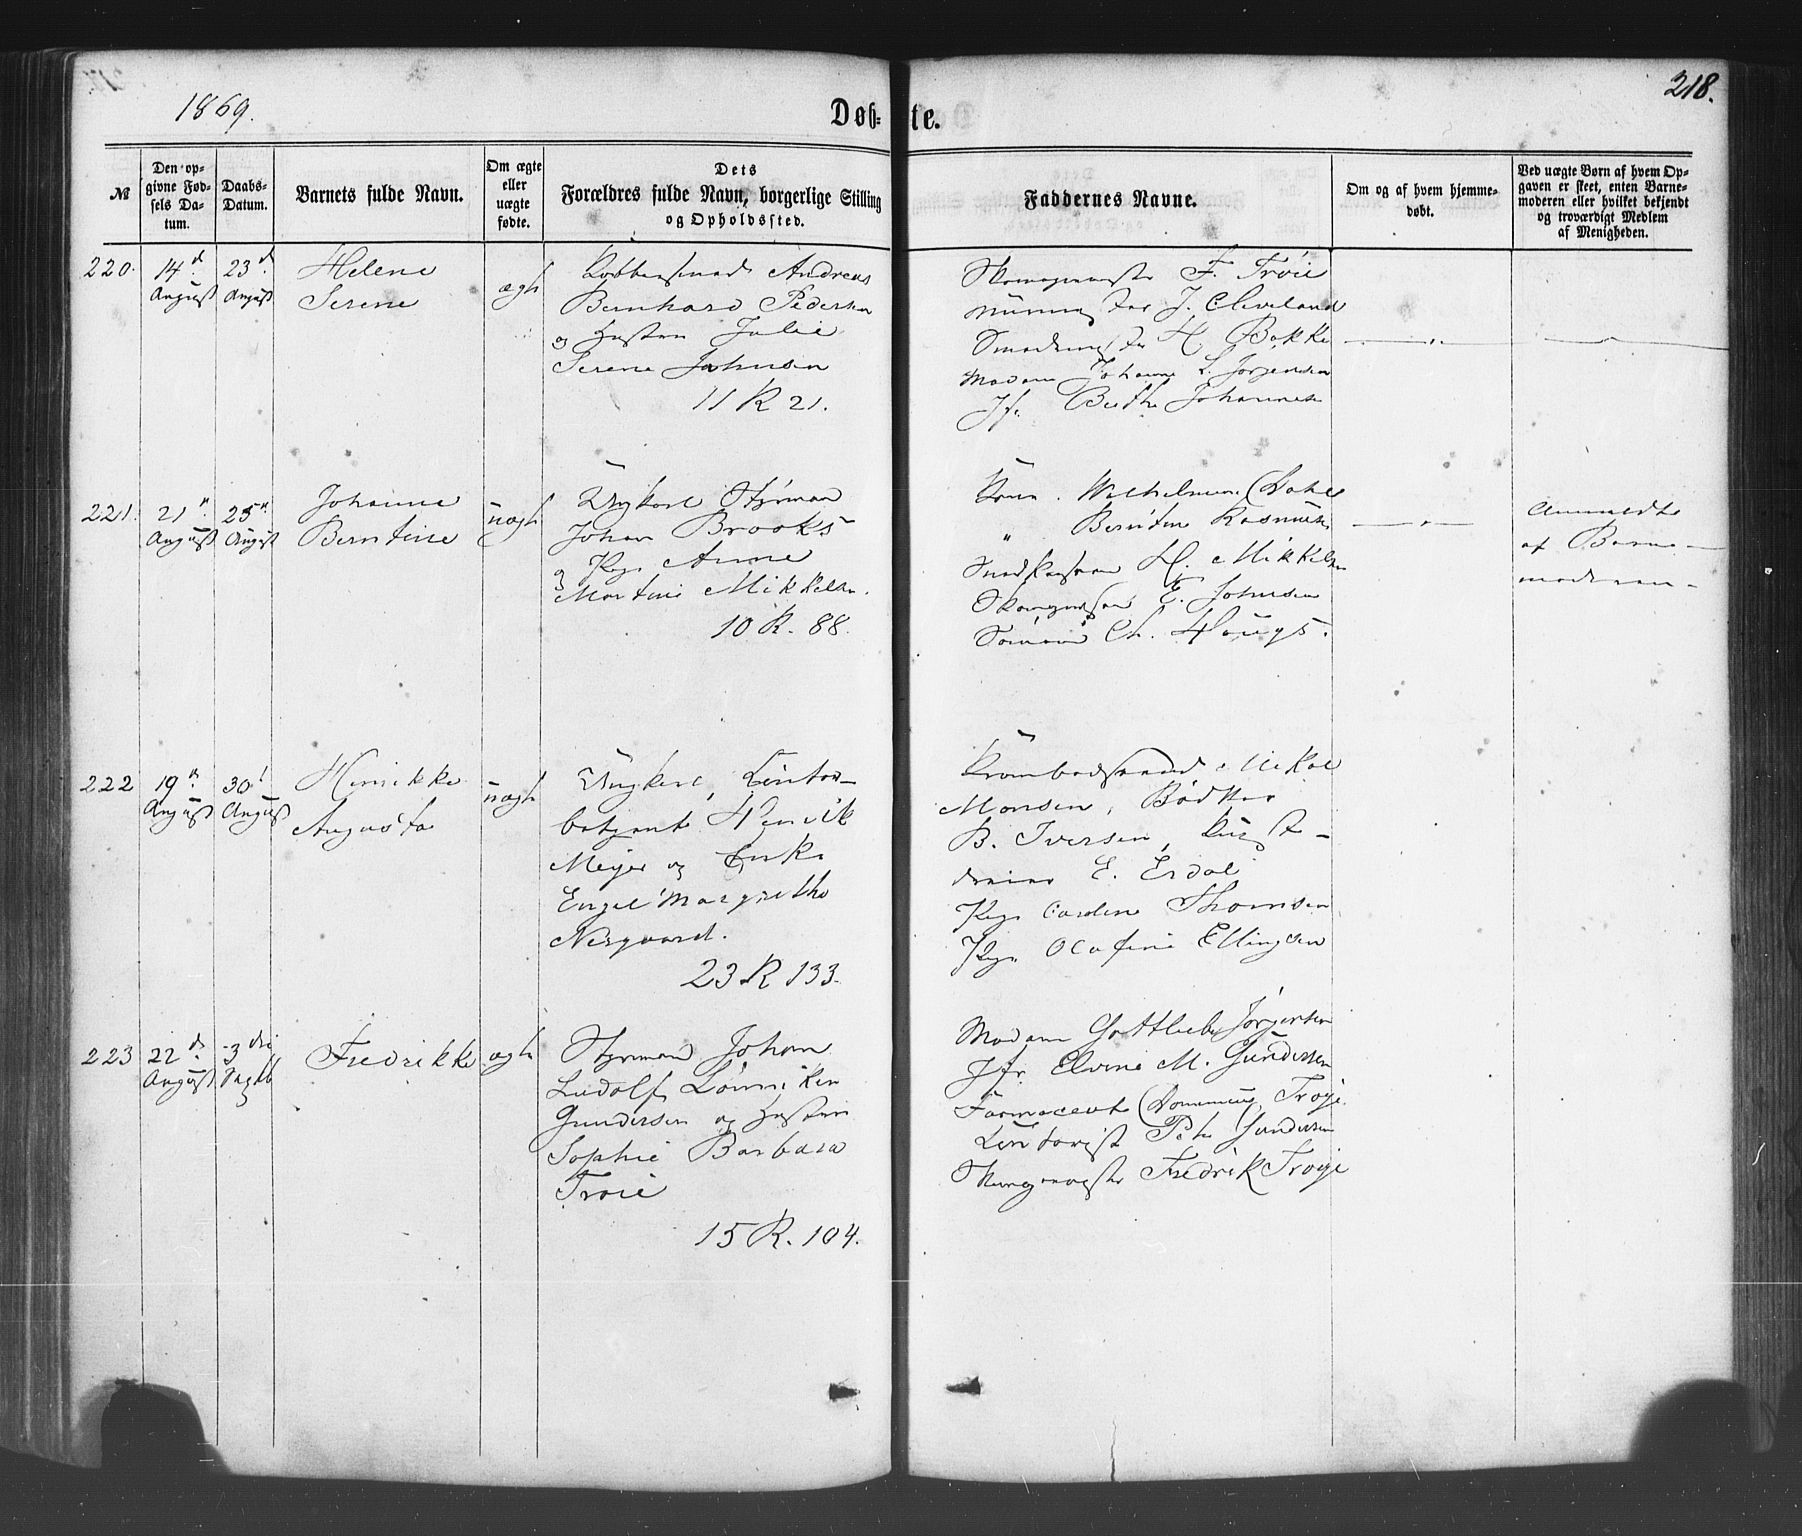 1869.
Døb-te.
218.
№
Den op-
givne Fød-
sels Da-
tum.
Daabs-
Datum.
Barnets fulde Navn.
Om ægte
eller
uægte
fødte.
Dets
Forældres fulde Navn, borgerlige Stilling
og Opholdssted.
Faddernes Navne.
Om og af hvem hjemme-
døbt.
Ved uægte Børn af hvem Op-
gaven er skeet, enten Barne-
moderen eller hvilket bekjendt
og troværdigt Medlem
af Menigheden.
220.
14d
August
23d
August
Helene
Serene
ægte
Andreas
Bernhard Pedersen
og Hustru Julie
Serene Johnsen
11 R 21.
F. Trøie
J. Cleveland
H. Bakke
Madame Johanne L. Jørgensen
Jfr. Berthe Johannesen
221.
21n
August
25n
August
Johanne
Berntine
uægte
Ungkarl Styrmand
Johan Brooks
og Pige Anne
Martine Mikkelsen.
10 R. 88.
Kone. Wilhelmine Dahl
" Berntine Rasmusen
H. Mikkelsen
E. Johnsen
Sømand Ch. Haugs.
Anmeldt
af Barne-
moderen.
222
19n
August
30d
August
Henrikke
Augusta
uægte
Ungkarl, Contor-
betjent Henrik
Meyer og Enke
Engel Margrethe
Nesgaard.
23 R 133.
Mikal
Monsen, Bødker
B. Iversen,
E. Erdal
Pige Caroline Thomsen
Pige Olafine Ellingsen
223
22d
August
3die
Septb
Fredrikke
ægte
Styrmand Johan
Ludolf Lønniken
Gundersen og Hustru
Sophie Barbara
Trøie
15 R. 104.
Madam Gottliebe Jørgensen
Jfr. Elvine M. Gundersen
Farmaceut Dominicus Trøje
Contorist Peter Gundersen
Fredrik Trøje